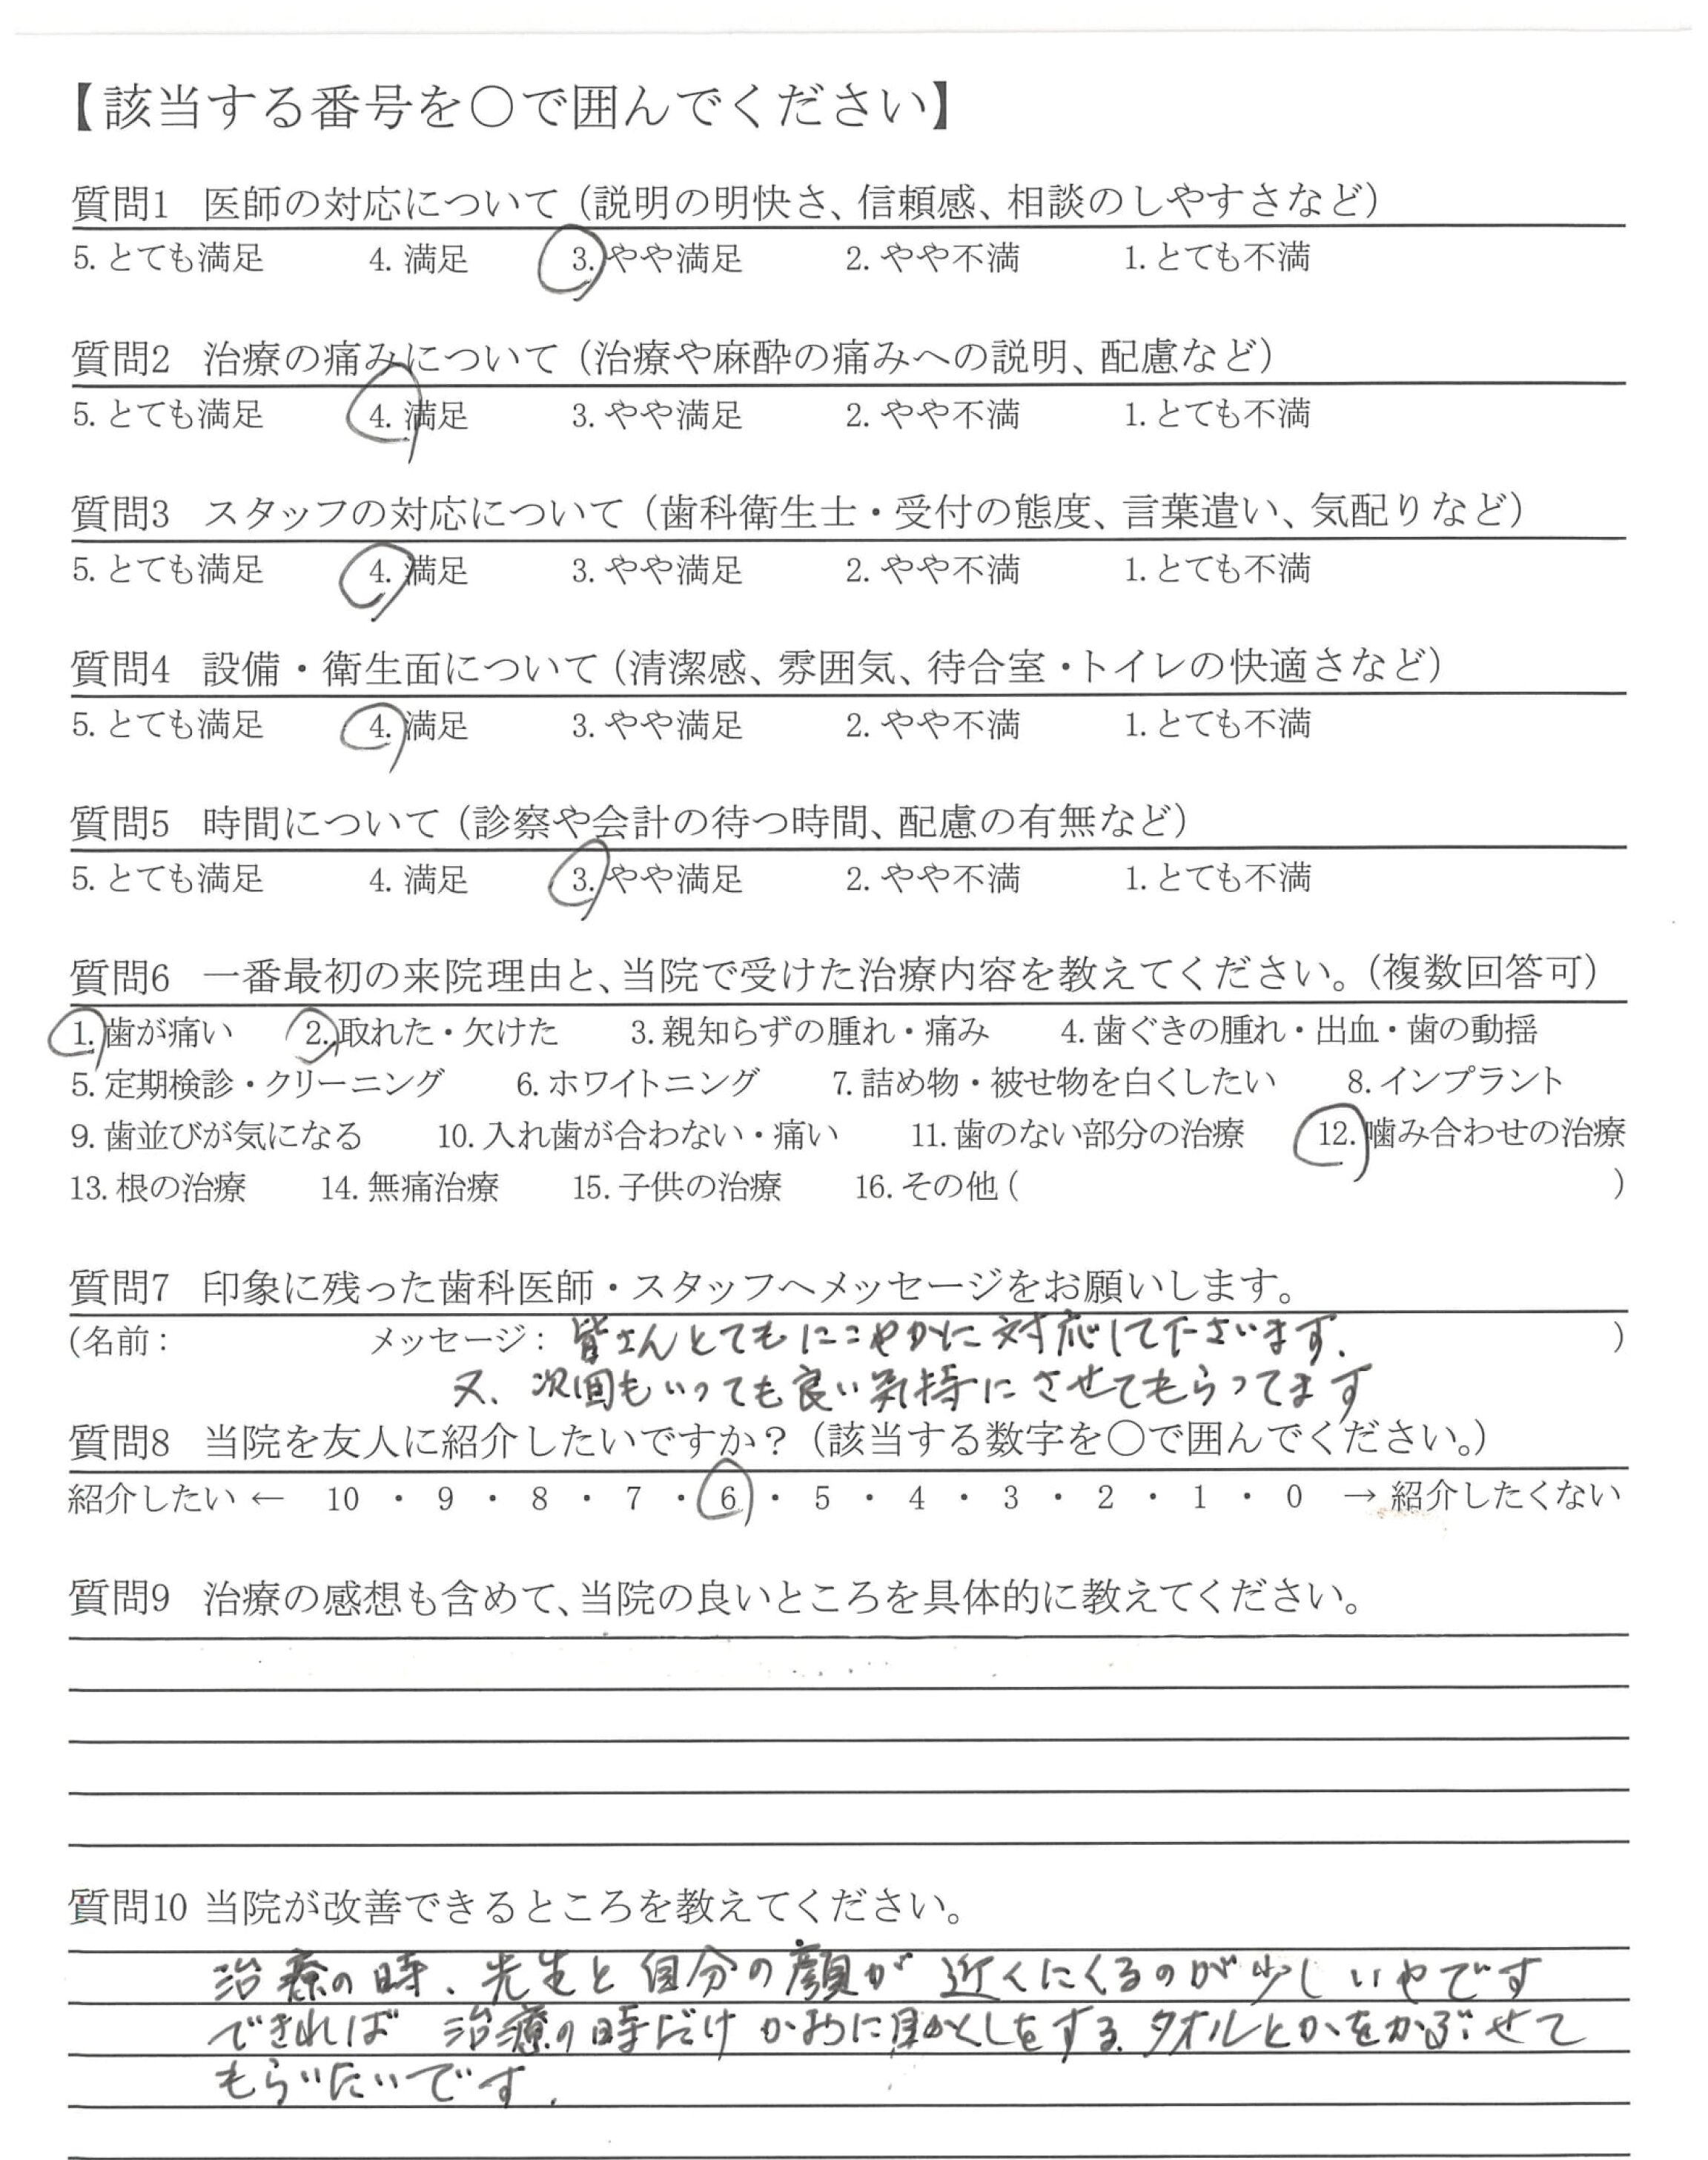 【該当する番号を○で囲んでください】
質問1 医師の対応について（説明の明快さ、信頼感、相談のしやすさなど）
5. とても満足 4. 満足 3. やや満足 2. やや不満 1. とても不満
質問2 治療の痛みについて（治療や麻酔の痛みへの説明、配慮など）
5. とても満足 4. 満足 3. やや満足 2. やや不満 1. とても不満
質問3 スタッフの対応について（歯科衛生士・受付の態度、言葉遣い、気配りなど）
5. とても満足 4. 満足 3. やや満足 2. やや不満 1. とても不満
質問4 設備・衛生面について（清潔感、雰囲気、待合室・トイレの快適さなど）
5. とても満足 4. 満足 3. やや満足 2. やや不満 1. とても不満
質問5 時間について（診察や会計の待つ時間、配慮の有無など）
5. とても満足 4. 満足 3. やや満足 2. やや不満 1. とても不満
質問6 一番最初の来院理由と、当院で受けた治療内容を教えてください。（複数回答可）
1. 歯が痛い 2. 取れた・欠けた 3. 親知らずの腫れ・痛み 4. 歯ぐきの腫れ・出血・歯の動揺
5. 定期検診・クリーニング 6. ホワイトニング 7. 詰め物・被せ物を白くしたい 8. インプラント
9. 歯並びが気になる 10. 入れ歯が合わない・痛い 11. 歯のない部分の治療 12. 噛み合わせの治療
13. 根の治療 14. 無痛治療 15. 子供の治療 16. その他 ( )
質問7 印象に残った歯科医師・スタッフへメッセージをお願いします。
(名前： メッセージ： 皆さんとてもにこやかに対応して下さいます. )
又、次回もいっても良い気持にさせてもらってます
質問8 当院を友人に紹介したいですか？（該当する数字を○で囲んでください。）
紹介したい ← 10 ・ 9 ・ 8 ・ 7 ・ 6 ・ 5 ・ 4 ・ 3 ・ 2 ・ 1 ・ 0 → 紹介したくない
質問9 治療の感想も含めて、当院の良いところを具体的に教えてください。
質問10 当院が改善できるところを教えてください。
治療の時、先生と自分の顔が近くにくるのが少しいやです
できれば 治療の時だけ かおに目かくしをする タオルとかをかぶせて
もらいたいです.